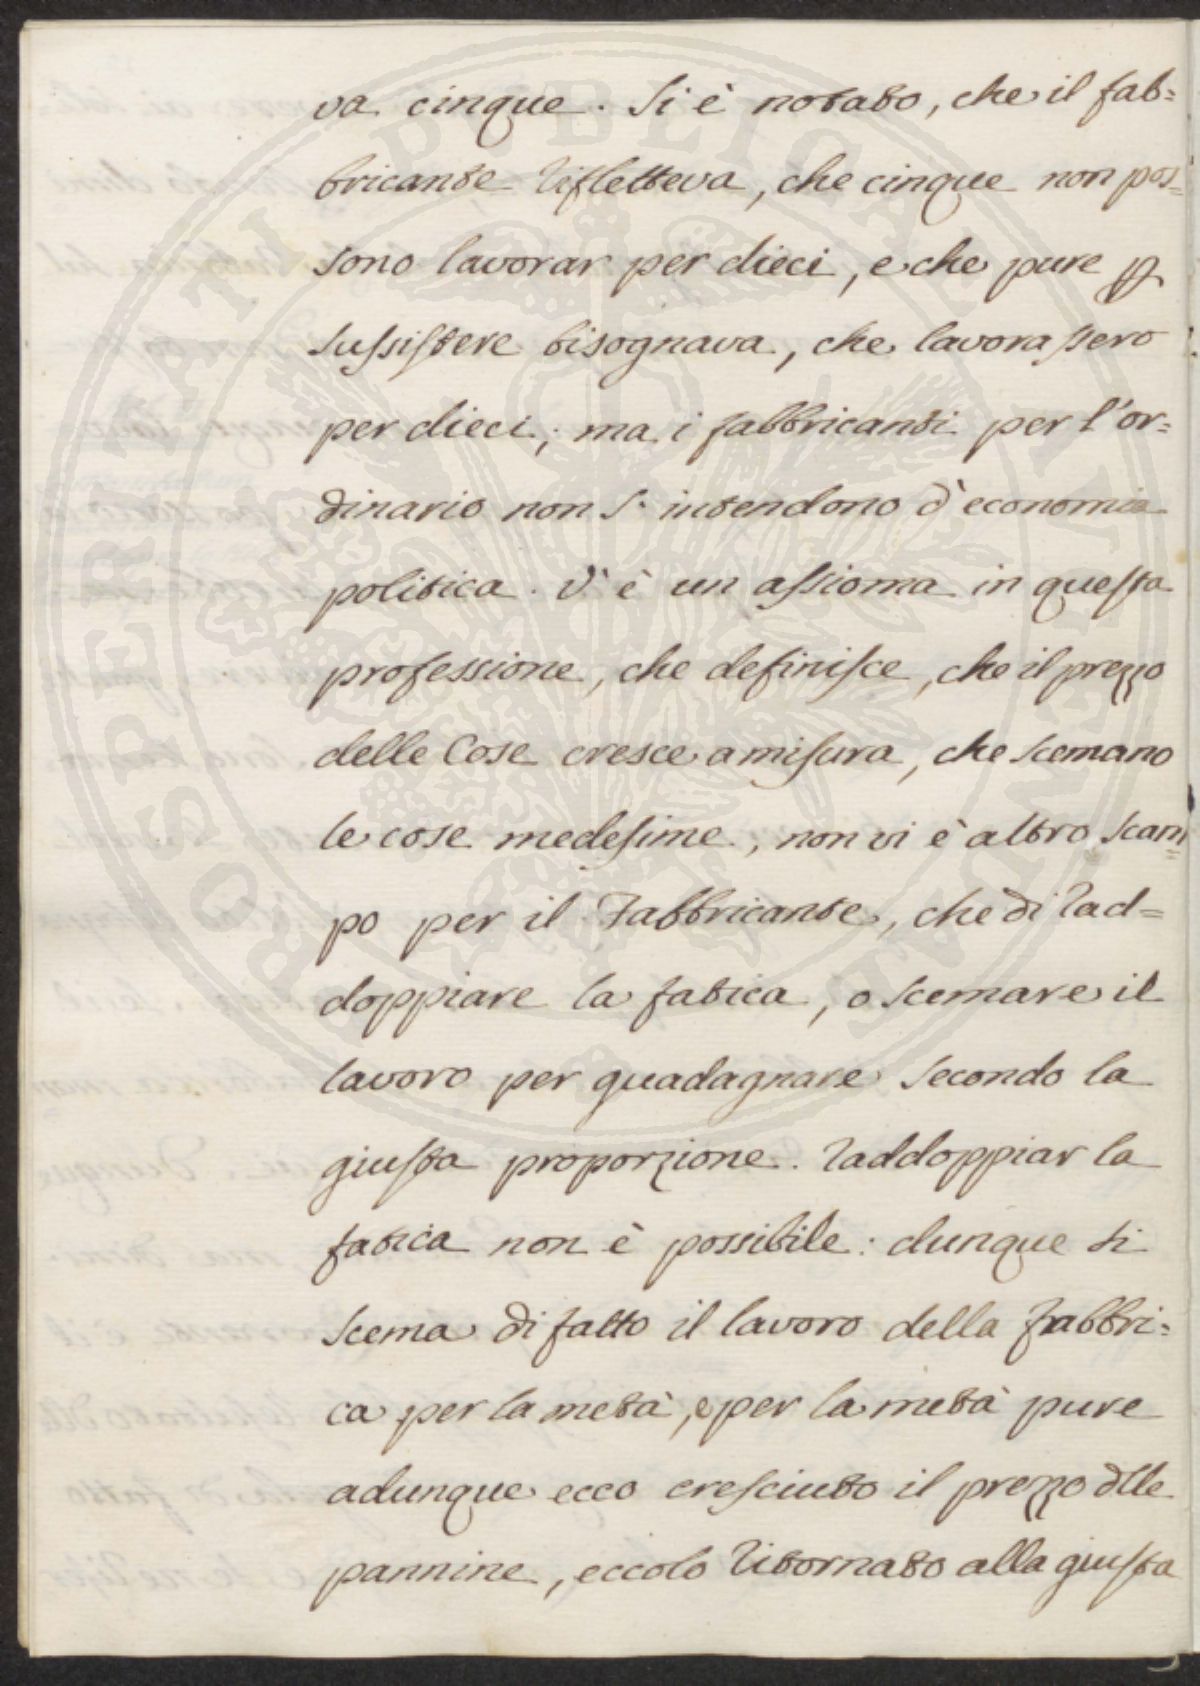 va cinque. Si è notato, che il fab=
bricante rifletteva, che cinque non pos=
sono lavorar per dieci, e che pure ꝑ
sussistere bisognava, che lavorassero
per dieci; ma i fabbricanti per l'or=
dinario non s'intendono d'economia
politica. V'è un assioma in questa
professione, che definisce, che il prezzo
delle Cose cresce a misura, che scemano
le cose medesime, non vi è altro scam=
po per il Fabbricante, che di rad=
doppiare la fatica, o scemare il
lavoro per guadagnare secondo la
giusta proporzione. Raddoppiar la
fatica non è possibile: dunque si
scema di fatto il lavoro della fabbri=
ca per la metà, e per la metà pure
adunque ecco cresciuto il prezzo dlle
pannine, eccolo ritornato alla giusta
PROSPERITATI PUBLICAE AUGENDAE